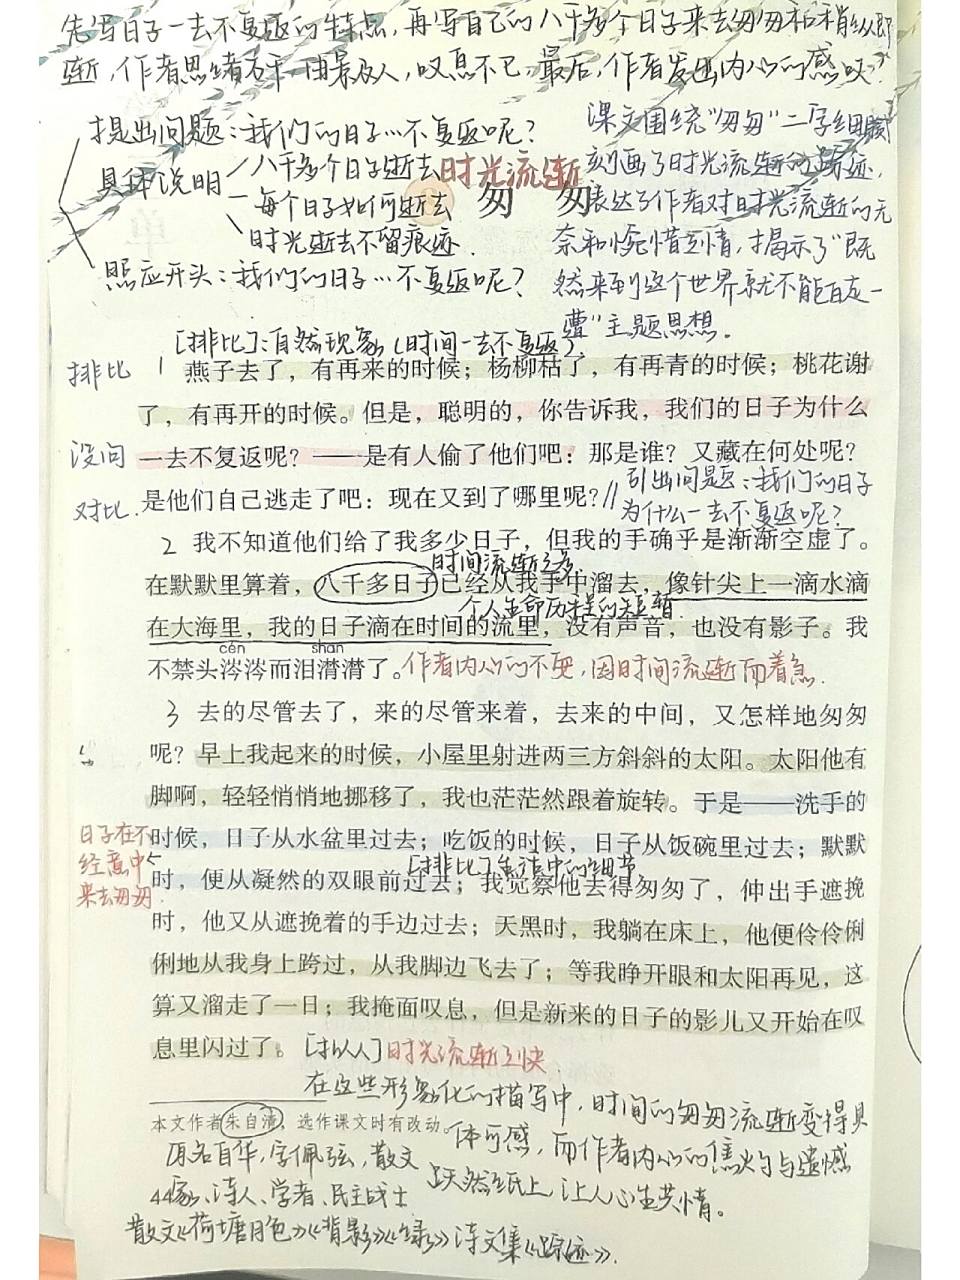 先写日子一去不复返的特点，再写自己的八千多个日子来去匆匆和稍纵即
逝，作者思绪万千，由景及人，叹息不已，最后，作者发出内心的感叹。
提出问题：我们的日子…不复返呢？
具体说明
八千多个日子逝去
每个日子如何逝去
时光逝去不留痕迹．
照应开头：我们的日子…不复返呢？
时光流逝
匆 匆
课文围绕“匆匆”二字细腻
刻画了时光流逝的踪迹，
表达了作者对时光流逝的无
奈和惋惜之情，揭示了“既
然来到这个世界就不能白走一
遭”主题思想．
[排比]：自然现象（时间一去不复返）
排比
1 燕子去了，有再来的时候；杨柳枯了，有再青的时候；桃花谢
了，有再开的时候。但是，聪明的，你告诉我，我们的日子为什么
设问
一去不复返呢？——是有人偷了他们吧：那是谁？又藏在何处呢？
对比．
是他们自己逃走了吧：现在又到了哪里呢？//
引出问题：我们的日子
为什么一去不复返呢？
2 我不知道他们给了我多少日子，但我的手确乎是渐渐空虚了。
时间流逝之多．
在默默里算着，八千多日子已经从我手中溜去，像针尖上一滴水滴
个人生命历程的短暂．
在大海里，我的日子滴在时间的流里，没有声音，也没有影子。我
cén shān
不禁头涔涔而泪潸潸了。作者内心的不安，因时间流逝而着急．
3 去的尽管去了，来的尽管来着，去来的中间，又怎样地匆匆
呢？早上我起来的时候，小屋里射进两三方斜斜的太阳。太阳他有
脚啊，轻轻悄悄地挪移了，我也茫茫然跟着旋转。于是——洗手的
日子在不
经意中
来去匆匆．
时候，日子从水盆里过去；吃饭的时候，日子从饭碗里过去；默默
[排比]生活中的细节
时，便从凝然的双眼前过去；我觉察他去得匆匆了，伸出手遮挽
时，他又从遮挽着的手边过去；天黑时，我躺在床上，他便伶伶俐
俐地从我身上跨过，从我脚边飞去了；等我睁开眼和太阳再见，这
算又溜走了一日；我掩面叹息，但是新来的日子的影儿又开始在叹
息里闪过了。[拟人]时光流逝之快．
在这些形象化的描写中，时间的匆匆流逝变得具
体可感，而作者内心的焦灼与遗憾
跃然纸上，让人心生共情。
本文作者朱自清，选作课文时有改动。
原名自华，字佩弦，散文
家、诗人、学者、民主战士
散文《荷塘月色》《背影》《绿》诗文集《踪迹》．